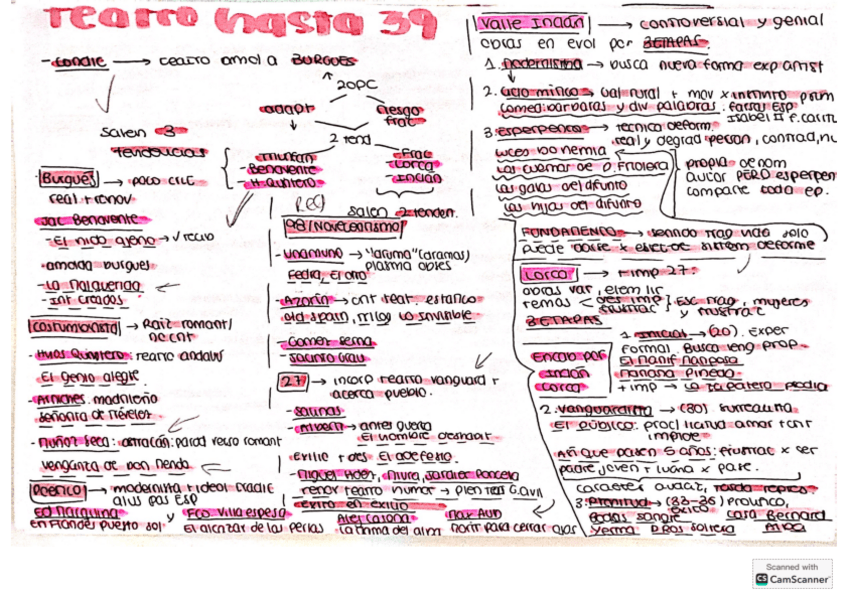 Teatro hasta 39
- Condic → teatro amol a BURGUÉS
2 OPC
adapt
riesgo frac
2 tend
Salen 3 tendencias
Triunfan
- Benavente
- H. Quintero
Frac
- Lorca
- Inclán
Burgués → poco crit
real + renov
Jac Benavente
- El nido ajeno →
- amolda burgués
- La Malquerida
- Int creados
Costumbrista → Raíz romant/
- Hnos Quintero: teatro andaluz
El genio alegre
- Arniches: madrileño
Señorita de Trévelez
- Muñoz Seca: astracán: parod teatro romant
Venganza de Don Mendo
Poético → modernista + ideol tradic
alus pas Esp
Ed Marquina y Fco. Villaespesa
en Flandes puesto sol El alcázar de las perlas
Salen 2 tenden.
98 (Novecentismo)
- Unamuno → "drama"
plasma obses
Fedra, El otro
- Azorín → ant teat. estático
old Spain, trilog Lo invisible
- Gómez Serna
- Jacinto Grau
27 → incorp teatro vanguard +
acerca pueblo.
- Salinas
- Alberti → antes guerra
El hombre deshabit
Exilio + des El adefesio.
- Miguel Hder, Mihura, Jardiel Poncela
renov teatro humor → plen G.civil
- éxito en exilio
Alej Casona Max Aub
La dama del alba Morir para cerrar ojos
Valle Inclán → controversial y genial
obras en evol por 3 ETAPAS.
1. Modernista → busca nueva forma exp artist
2. Ciclo mítico → Gal rural + mov x instinto prim
comed. bárbaras y div palabras. farsas esp
3. Esperpento → técnica deform.
real y degrad person, contrad,
Luces bohemia
Los cuernos de D. Friolera
Las galas del difunto
Las hijas del difunto
propia denom
autor PERO esperpen
comparte toda ep.
FUNDAMENTO → sentido trag vida solo
puede darse x estét sistem deforme
Lorca → + imp 27:
obras var, elem lir
temas
des imp
frustrac
Esc trag, mujeres
y frustrac
3 ETAPAS
1. Inicial → (20). Exper
formal. Busca leng prop.
Mariana Pineda
+ imp → La zapatera prodig
Encabo por
Inclán
Lorca
2. Vanguardista → (30) surrealista
El público: procl licitud amor +
Así que pasen 5 años: frustrac x ser
padre joven
caracter audaz,
3. Plenitud → (33-36)
éxito
Bodas sangre Casa Bernard
Yerma D. Ros soltera Alba
Scanned with
CS CamScanner